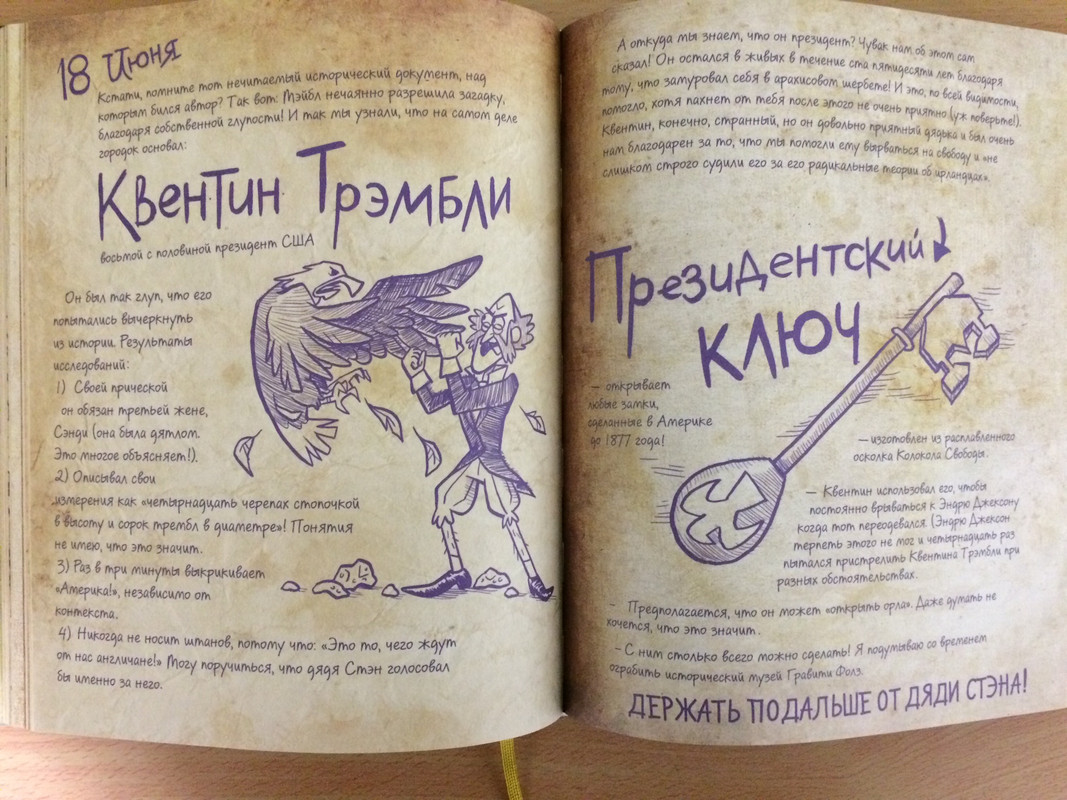 18 Июня
Кстати, помните тот нечитаемый исторический документ, над
которым бился автор? Так вот: Мэйбл нечаянно разрешила загадку,
благодаря собственной глупости! И так мы узнали, что на самом деле
городок основал:
Квентин Трэмбли
восьмой с половиной президент США
Он был так глуп, что его
попытались вычеркнуть
из истории. Результаты
исследований:
1) Своей прической
он обязан третьей жене,
Сэнди (она была дятлом.
Это многое объясняет!).
2) Описывал свои
измерения как «четырнадцать черепах стопочкой
в высоту и сорок трембл в диаметре»! Понятия
не имею, что это значит.
3) Раз в три минуты выкрикивает
«Америка!», независимо от
контекста.
4) Никогда не носит штанов, потому что: «Это то, чего ждут
от нас англичане!» Могу поручиться, что дядя Стэн голосовал
бы именно за него.
А откуда мы знаем, что он президент? Чувак нам об этом сам
сказал! Он остался в живых в течение ста пятидесяти лет благодаря
тому, что замуровал себя в арахисовом шербете! И это, по всей видимости,
помогло, хотя пахнет от тебя после этого не очень приятно (уж поверьте!).
Квентин, конечно, странный, но он довольно приятный дядька и был очень
нам благодарен за то, что мы помогли ему вырваться на свободу и «не
слишком строго судили его за его радикальные теории об ирландцах».
Президентский
ключ
– открывает
любые замки,
сделанные в Америке
до 1877 года!
– изготовлен из расплавленного
осколка Колокола Свободы.
– Квентин использовал его, чтобы
постоянно врываться к Эндрю Джексону
когда тот переодевался. (Эндрю Джексон
терпеть этого не мог и четырнадцать раз
пытался пристрелить Квентина Трэмбли при
разных обстоятельствах.
– Предполагается, что он может «открыть орла». Даже думать не
хочется, что это значит.
– С ним столько всего можно сделать! Я подумываю со временем
огробить исторический музей Гравити Фолз.
ДЕРЖАТЬ ПОДАЛЬШЕ ОТ ДЯДИ СТЭНА!